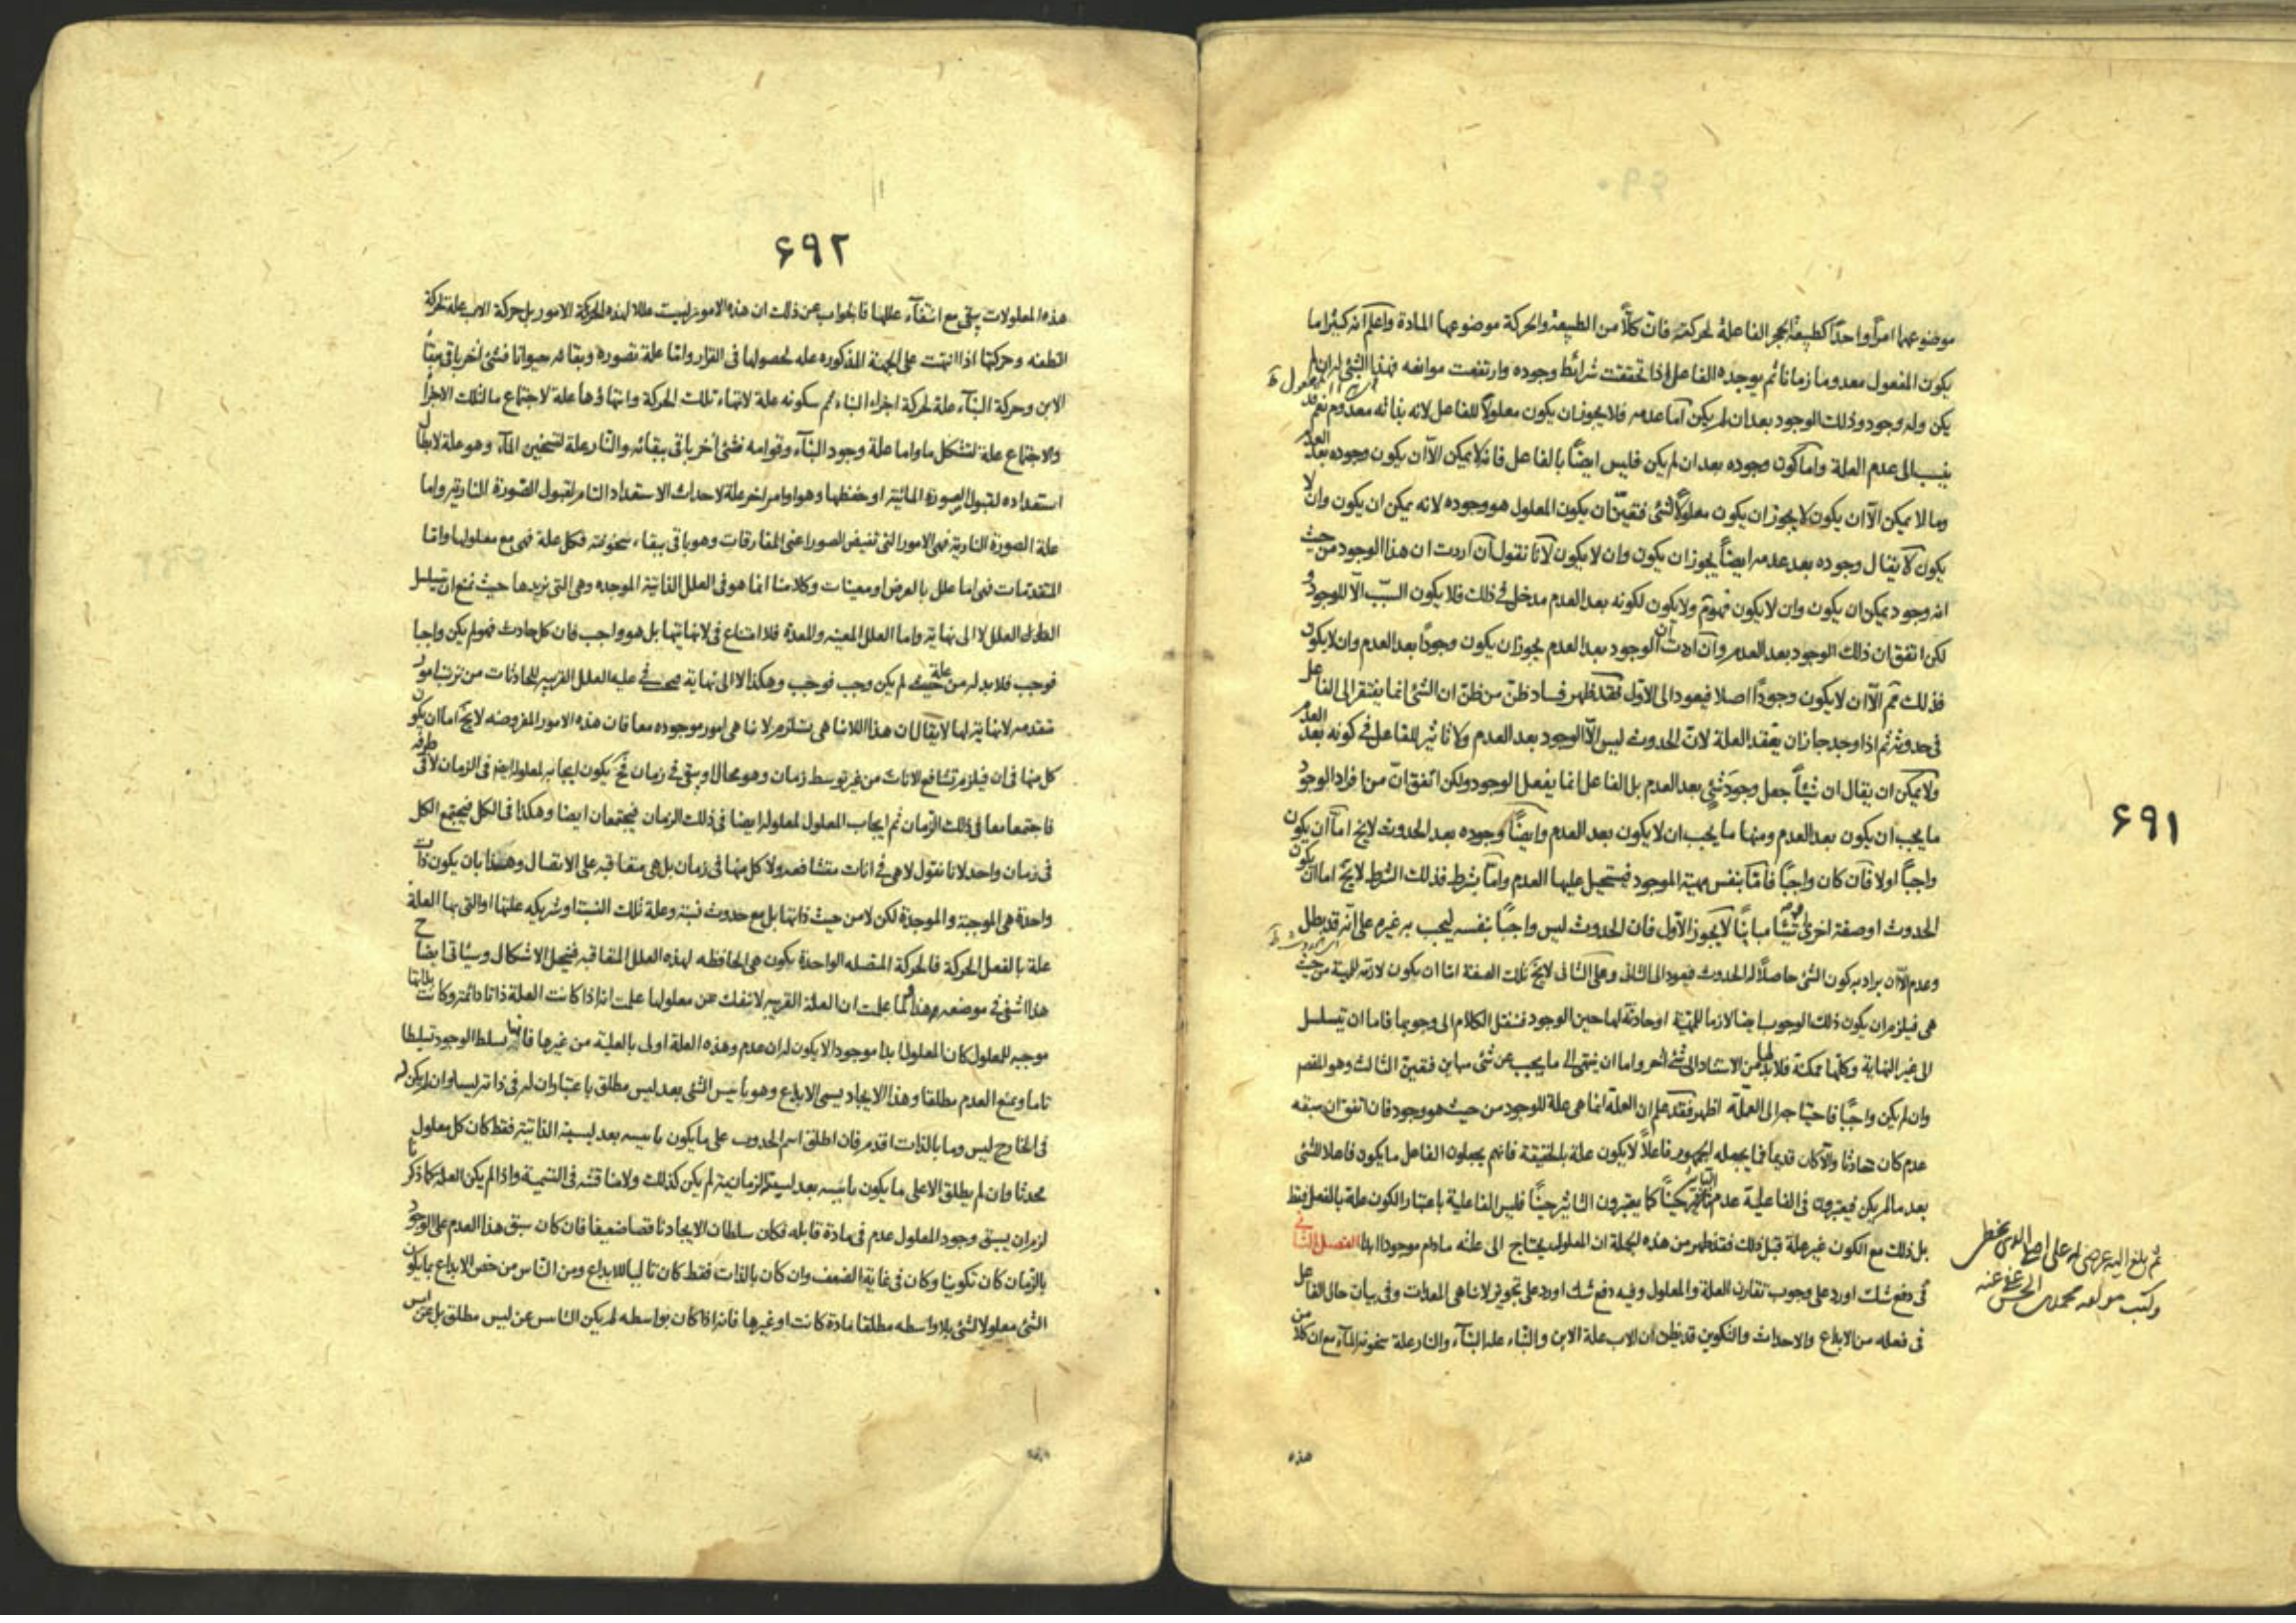 ۶۹۱
موضوعهما امراً واحداً كطبيعة الحجر الفاعلة لحركته فان كلاً من الطبيعة والحركة موضوعهما المادة واعلم انه كثيراما
يكون المفعول معدوما زمانا ثم يوجده الفاعل اذا تحققت شرائط وجوده وارتفعت موانعه فهذا الشئ له ان لم
يكن وله وجود وذلك الوجود بعد ان لم يكن اما عدمه فلا يجوز ان يكون معلولاً للفاعل لانه بذاته معدوم نعم قد
ينسب الى عدم العلة واما كون وجوده بعد ان لم يكن فليس ايضاً بالفاعل فانه لا يمكن الا ان يكون وجوده بعد العدم
وما لا يمكن الا ان يكون لا يجوز ان يكون معلولاً لشئ فتعين ان يكون المعلول هو وجوده لانه يمكن ان يكون وان لا
يكون لا يقال وجوده بعد عدمه ايضاً يجوز ان يكون وان لا يكون لانا نقول ان اردت ان هذا الوجود من حيث
انه وجود يمكن ان يكون وان لا يكون فهو ثم ولا يكون لكونه بعد العدم مدخل فى ذلك فلا يكون السبب الا للوجود و
لكن اتفق ان ذلك الوجود بعد العدم وان اردت ان الوجود بعد العدم يجوز ان يكون وجوداً بعد العدم وان لا يكون
فذلك ثم الا ان لا يكون وجوداً اصلا فيعود الى الاول فقد ظهر فساد ظن من ظن ان الشئ انما يفتقر الى الفاعل
فى حدوثه ثم اذا وجد جاز ان يفقد العلة لان الحدوث ليس الا الوجود بعد العدم ولا تاثير للفاعل فى كونه بعد العدم
ولا يمكن ان يقال ان شيئاً جعل وجود شئ بعد العدم بل الفاعل انما يفعل الوجود ولكن اتفق ان من افراد الوجود
ما يجب ان يكون بعد العدم ومنها ما يجب ان لا يكون بعد العدم وايضاً وجوده بعد الحدوث لا يخ اما ان يكون
واجباً اولا فان كان واجباً فاما بنفس مهية الموجود فيستحيل عليها العدم واما بشرط فذلك الشرط لا يخ اما ان يكون
الحدوث او صفة اخرى او شيئا مبايناً لا يجوز الاول فان الحدوث ليس واجباً بنفسه ليجب به غيره على انه قد بطل
وعدم الا ان يراد به كون الشئ حاصلاً له الحدوث فيعود الى الثانى وعلى الثانى لا يخ تلك الصفة اما ان يكون لازمة للمهية من حيث
هى فيلزم ان يكون ذلك الوجوب ايضا لازما للمهية او حادثة لها حين الوجود فننقل الكلام الى وجوبها فاما ان تتسلسل
الى غير النهاية وكلها ممكنة فلا بد لها من الاستناد الى شئ اخر واما ان ينتهى الى ما يجب عن شئ مباين فتعين الثالث وهو المقصد
وان لم يكن واجباً فاحتياجه الى العلة اظهر فقد علم ان العلة انما هى علة للوجود من حيث هو وجود فان اتفق ان سبقه
عدم كان حادثا والا كان قديما فما يجعله الجمهور فاعلاً لا يكون علة بالحقيقة فانهم يجعلون الفاعل ما يكون فاعلا للشئ
بعد ما لم يكن فيعتبرون فى الفاعلية عدم التاثير حيناً كما يعتبرون التاثير حيناً فليس الفاعلية باعتبار الكون علة بالفعل فقط
بل ذلك مع الكون غير علة قبل ذلك فقد ظهر من هذه الجملة ان المعلول يحتاج الى علته مادام موجودا ابدا الفصل الثانى
فى دفع شك اورد على وجوب تقارن العلة والمعلول وفيه دفع شك اورد على تجويز لا تناهى المعدات وفى بيان حال الفاعل
فى فعله من الابداع والاحداث والتكوين قد يظن ان الاب علة الابن والبناء علة البناء والنار علة سخونة الماء مع ان كلاً من
هذه
۶۹۲
هذه المعلولات يبقى مع انتفاء عللها فالجواب عن ذلك ان هذه الامور ليست عللا لهذه الامور بل حركة الاب علة لحركة
النطفة وحركتها اذا انتهت على الجهة المذكورة علة لحصولها فى القرار واما علة تصوره وبقائه حيوانا فشئ اخر باق ببقاء
الابن وحركة البناء علة لحركة اجزاء البناء ثم سكونه علة لانتهاء تلك الحركة وانتهاؤها علة لاجتماع ما لتلك الاجزاء
والاجتماع علة لتشكل ما واما علة وجود البناء وقوامه فشئ اخر باق ببقائه والنار علة لتسخين الماء وهو علة لابطال
استعداده لقبول الصورة المائية او حفظها وهو او امر اخر علة لاحداث الاستعداد التام لقبول الصورة النارية واما
علة الصورة النارية فهى الامور التى تفيض الصور اعنى المفارقات وهو باق ببقاء سخونته فكل علة فهى مع معلولها واما
المتقدمات فهى اما علل بالعرض او معينات وكلامنا انما هو فى العلل الذاتية الموجدة وهى التى نريدها حيث نمنع ان تتسلسل
العلل لا الى نهاية واما العلل المعينة والمعدة فلا امتناع فى لا نهايتها بل هو واجب فان كل حادث فهو لم يكن واجبا
فوجب فلا بد له من علة لم يكن وجب فوجب وهكذا لا الى نهاية فيجب فى علية العلل القريبة للحادثات من ترتب امور
متقدمه لا نهاية لها لا يقال ان هذا اللاتناهى يستلزم لا تناهى امور موجوده معا فان هذه الامور المفروضه لا يخ اما ان يكون
كل منها فى ان فيلزم تشافع الانات من غير توسط زمان وهو محال او يبقى فى زمان فح يكون ايجابه لمعلوله ايضا فى الزمان لا فى طرفه
فاجتمعا معا فى ذلك الزمان ثم ايجاب المعلول لمعلوله ايضا فى ذلك الزمان فيجتمعان ايضا وهكذا فى الكل فيجتمع الكل
فى زمان واحد لانا نقول لا هى فى انات متشافعه ولا كل منها فى زمان بل هى متعاقبه على الاتصال وهذا بان يكون ذات
واحدة هى الموجبة والموجدة لكن لا من حيث ذاتها بل مع حدوث نسبة وعلة تلك النسبة او شريكه علتها او التى بها العلة
علة بالفعل الحركة فالحركة المتصله الواحدة يكون هى الحافظه لهذه العلل المتعاقبه فينحل الاشكال وسياتى ايضاح
هذا اشفى فى موضعه وهذا ولما علمت ان العلة القريبه لا تنفك عن معلولها علمت انه اذا كانت العلة ذاتا دائمة وكانت بذاتها
موجبه للمعلول كان المعلول ابدا موجودا لا يكون له ان عدم وهذه العلة اولى بالعلية من غيرها فانها تسلط الوجود تسليطا
تاما ويمنع العدم مطلقا وهذا الايجاد يسمى الابداع وهو تاييس الشئ بعد ليس مطلق باعتبار ان له فى ذاته ليسا وان لم يكن له
فى الخارج ليس وما بالذات اقدم فان اطلق اسم الحدوث على ما يكون تاييسه بعد ليسية الذاتية فقط كان كل معلول
محدثا وان لم يطلق الا على ما يكون تاييسه بعد ليسيته الزمانية لم يكن كذلك ولا مناقشه فى التسمية واذا لم يكن العلة كما ذكرنا
لزم ان يسبق وجود المعلول عدم فى مادة قابله فكان سلطان الايجاد ناقصا ضعيفا فان كان سبق هذا العدم على الوجود
بالزمان كان تكوينا وكان فى غاية الضعف وان كان بالذات فقط كان تاليا للابداع ومن الناس من خص الابداع بما يكون
الشئ معلولا لشئ بلا واسطه مطلقا مادة كانت او غيرها فانه اذا كان بواسطه لم يكن التاييس عن ليس مطلق بل عن ايس